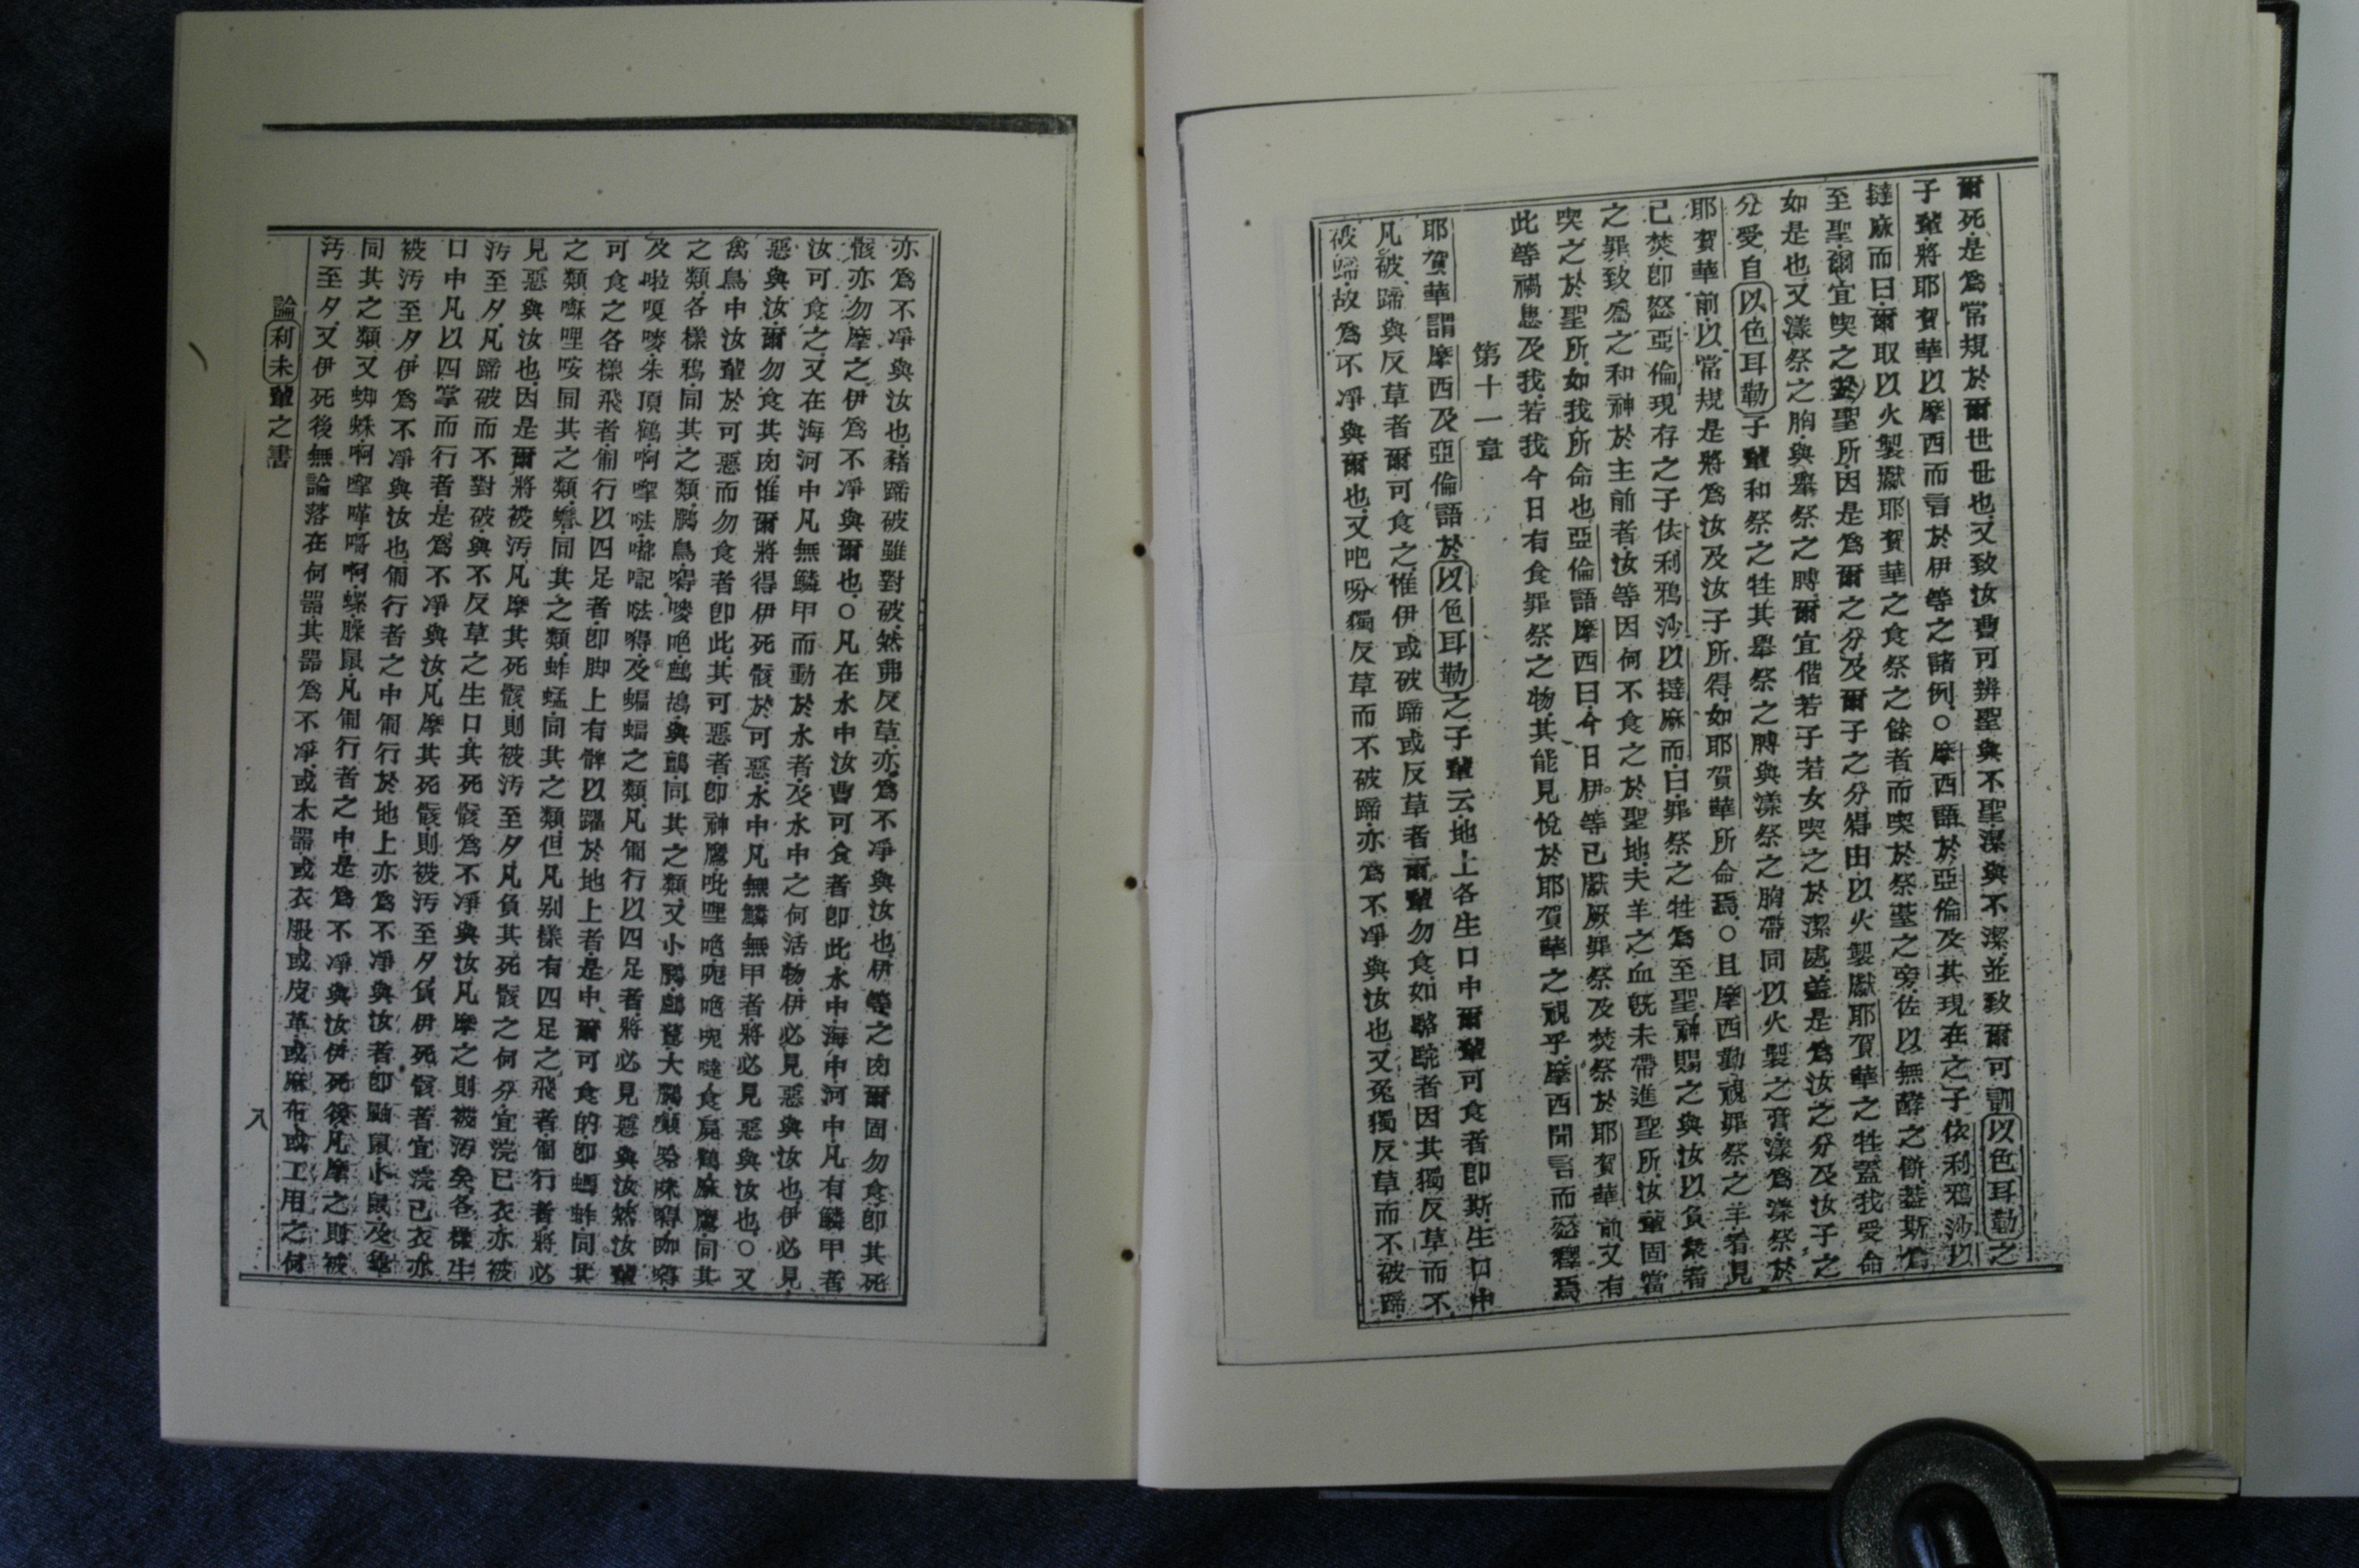 爾死是爲常規於爾世世也又致汝曹可辨聖與不聖潔與不潔並致爾可訓以色耳勒之
子輩將耶賀華以摩西而言於伊等之諸例○摩西語於亞倫及其現在之子依利鴉沙以
撻麻而曰爾取以火製獻耶賀華之食祭之餘者而喫於祭基之旁佐以無酵之餅蓋斯爲
至聖爾宜喫之於聖所因是爲爾之分及爾子之分得由以火製獻耶賀華之牲蓋我受命
如是也又漾祭之胸與舉祭之膊爾宜偕若子若女喫之於潔處蓋是爲汝之分及汝子之
分受自以色耳勒子輩和祭之牲其舉祭之膊與漾祭之胸帶同以火製之膏漾爲漾祭於
耶賀華前以常規是將爲汝及汝子所得如耶賀華所命焉○且摩西勤覗罪祭之羊看見
已焚卽怒亞倫現存之子依利鴉沙以撻麻而曰罪祭之牲爲至聖神賜之與汝以負衆者
之罪致爲之和神於主前者汝等因何不食之於聖地夫羊之血旣未帶進聖所汝輩固當
喫之於聖所如我所命也亞倫語摩西曰今日伊等已獻厥罪祭及焚祭於耶賀華前又有
此等禍患及我若我今日有食罪祭之物其能見悅於耶賀華之視乎摩西聞言而怒釋焉
第十一章
耶賀華謂摩西及亞倫語於以色耳勒之子輩云地上各生口中爾輩可食者卽斯生口中
凡被蹄與反草者爾可食之惟伊或破蹄或反草者爾輩勿食如駱駝者因其獨反草而不
破蹄故爲不凈與爾也又吧吩獨反草而不破蹄亦爲不凈與汝也又兔獨反草而不破蹄
亦爲不凈與汝也豬蹄破雖對破然弗反草亦爲不凈與汝也伊等之肉爾固勿食卽其死
骸亦勿摩之伊爲不凈與爾也○凡在水中汝曹可食者卽此水中海中河中凡有鱗甲者
汝可食之又在海河中凡無鱗甲而動於水者及水中之何活物伊必見惡與汝也伊必見
惡與汝爾勿食其肉惟爾將得伊死骸於可惡水中凡無鱗無甲者將必見惡與汝也○又
禽鳥中汝輩於可惡而勿食者卽此其可惡者卽神鷹吡哩唿呃唿呃噠食屍鶴麻鷹同其
之類各樣鴉同其之類鵬鳥嘚嘜唿鷓鴣與鷏同其之類又小鵬鷓鶿大鵬
及啦嗄嘜朱頂鶴啊嚤呿嘟記呿嘚及蝙蝠之類凡匍行以四足者將必見惡與汝然汝輩
可食之各樣飛者匍行以四足者卽脚上有髀以躍於地上者是中爾可食的卽蝈蚱同其
之類嘛哩咹同其之類蟾同其之類蚱蜢同其之類但凡别樣有四足之飛者匍行者將必
見惡與汝也因是爾將被汚凡摩其死骸則被汚至夕凡負其死骸之何分宜浣已衣亦被
汚至夕凡蹄破而不對破與不反草之生口其死骸爲不凈與汝凡摩之則被汚矣各樣生
口中凡以四掌而行者是爲不凈與汝凡摩其死骸則被汚至夕負伊死骸者宜浣已衣亦
被汚至夕伊爲不凈與汝也匍行者之中匍行於地上亦爲不凈與汝者卽鼬鼠小鼠及龜
同其之類又蜘蛛啊嚤嗶嗬啊螺䑕鼠凡匍行者之中是爲不凈與汝伊死後凡摩之則被
汚至夕又伊死後無論落在何器其器爲不凈或木器或衣服或皮革或麻布或工用之何
論利未輩之書
八